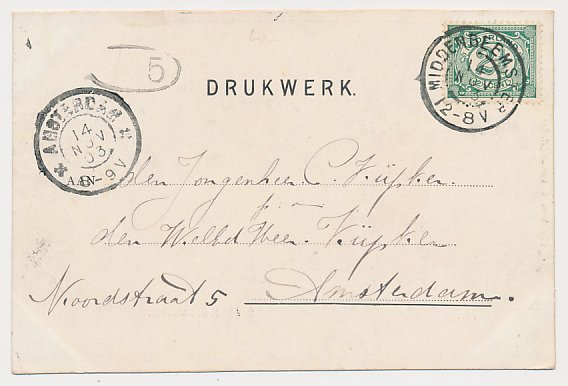 5
DRUKWERK.
MIDDENBEEMSTER
12-8V
AMSTERDAM
14
NOV
03
8-9V
AAN
den Jongenheer C. Kuijken
p/a
den WelEd Heer Kuijken
Noordstraat 5 Amsterdam.